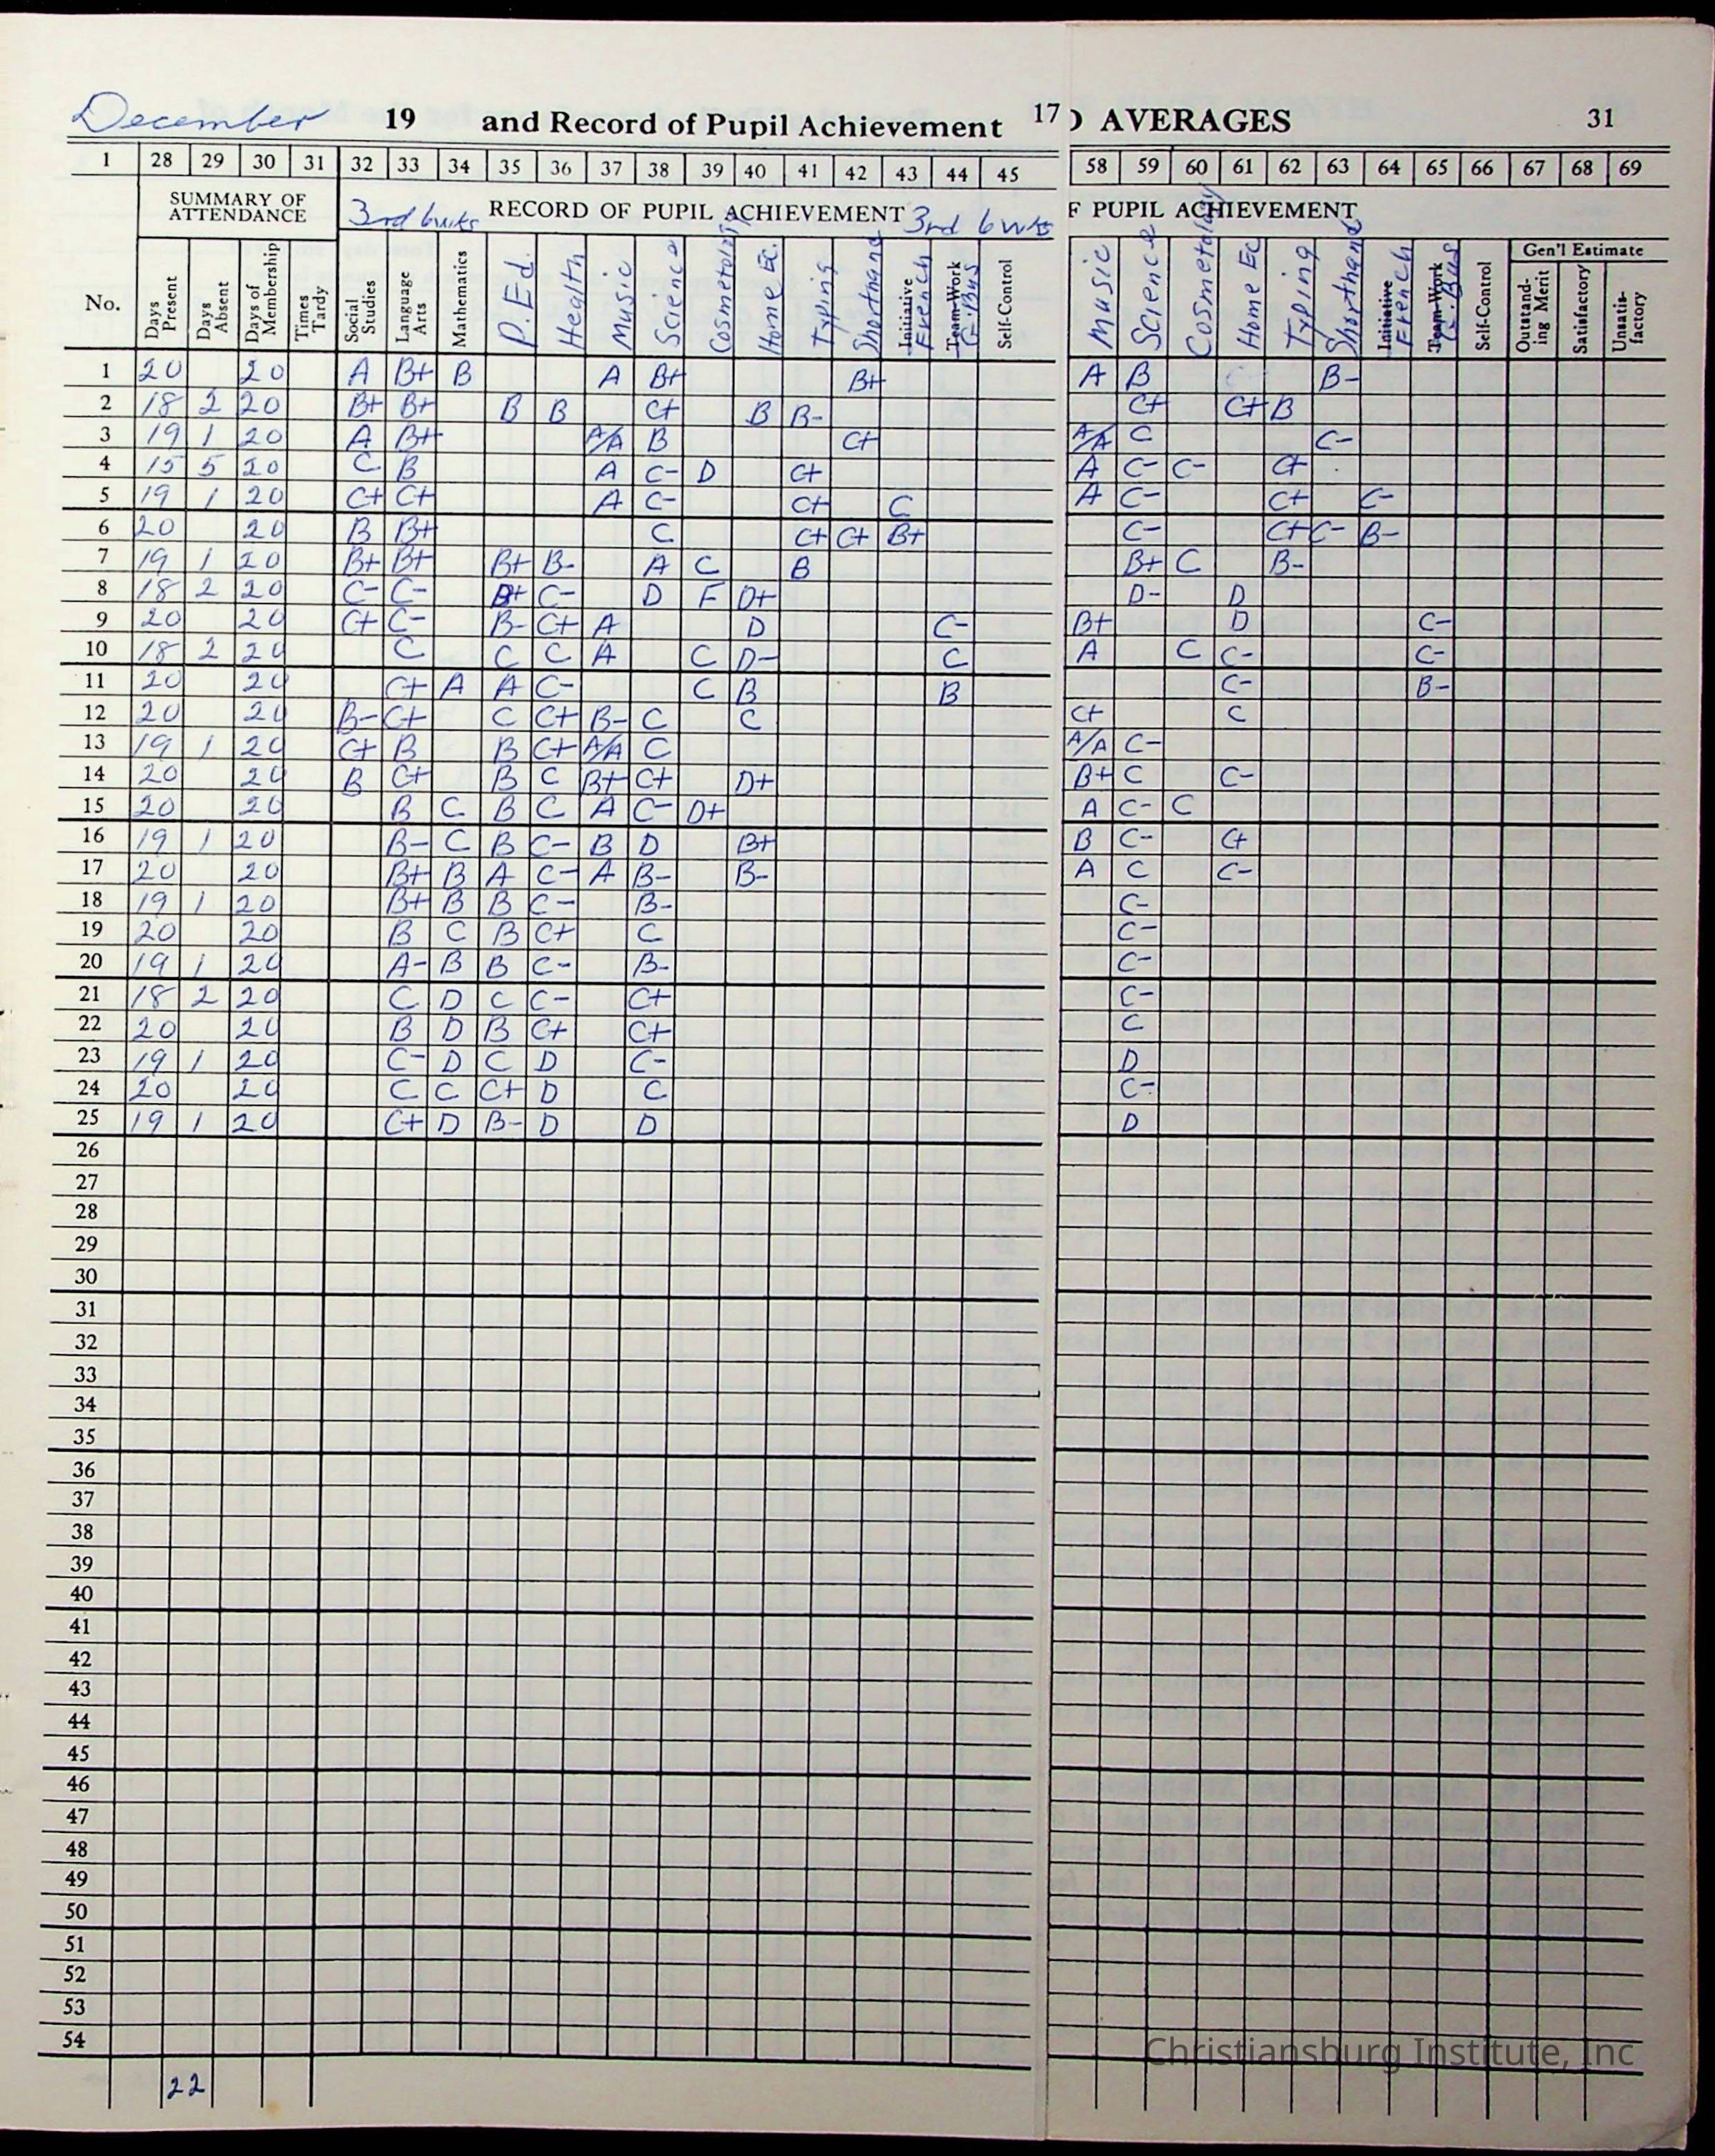 December 19 and Record of Pupil Achievement 17 D AVERAGES 31
1 28 29 30 31 32 33 34 35 36 37 38 39 40 41 42 43 44 45 58 59 60 61 62 63 64 65 66 67 68 69
SUMMARY OF ATTENDANCE 3rd 6 wks RECORD OF PUPIL ACHIEVEMENT 3rd 6 wks F PUPIL ACHIEVEMENT
Gen'l Estimate
No. Days Present Days Absent Days of Membership Times Tardy Social Studies Language Arts Mathematics P. Ed. Health Music Science Cosmetology Home Ec. Typing Shorthand Initiative French Team-Work G. Bus Self-Control Music Science Cosmetology Home Ec Typing Shorthand Initiative French Team-Work G. Bus Self-Control Outstanding Merit Satisfactory Unsatisfactory
1 20 20 A B+ B A B+ B+ A B B-
2 18 2 20 B+ B+ B B C+ B B- C+ C+ B
3 19 1 20 A B+ A/A B C+ A/A C C-
4 15 5 20 C B A C- D C+ A C- C- C+
5 19 1 20 C+ C+ A C- C+ C A C- C+ C-
6 20 20 B B+ C C+ C+ B+ C- C+ C- B-
7 19 1 20 B+ B+ B+ B- A C B B+ C B-
8 18 2 20 C- C- B+ C- D F D+ D- D
9 20 20 C+ C- B- C+ A D C- B+ D C-
10 18 2 20 C C C A C D- C A C C- C-
11 20 20 C+ A A C- C B B C- B-
12 20 20 B- C+ C C+ B- C C C+ C
13 19 1 20 C+ B B C+ A/A C A/A C-
14 20 20 B C+ B C B+ C+ D+ B+ C C-
15 20 20 B C B C A C- D+ A C- C
16 19 1 20 B- C B C- B D B+ B C- C+
17 20 20 B+ B A C- A B- B- A C C-
18 19 1 20 B+ B B C- B- C-
19 20 20 B C B C+ C C-
20 19 1 20 A- B B C- B- C-
21 18 2 20 C D C C- C+ C-
22 20 20 B D B C+ C+ C
23 19 1 20 C- D C D C- D
24 20 20 C C C+ D C C-
25 19 1 20 C+ D B- D D D
26
27
28
29
30
31
32
33
34
35
36
37
38
39
40
41
42
43
44
45
46
47
48
49
50
51
52
53
54
Christiansburg Institute, Inc
22